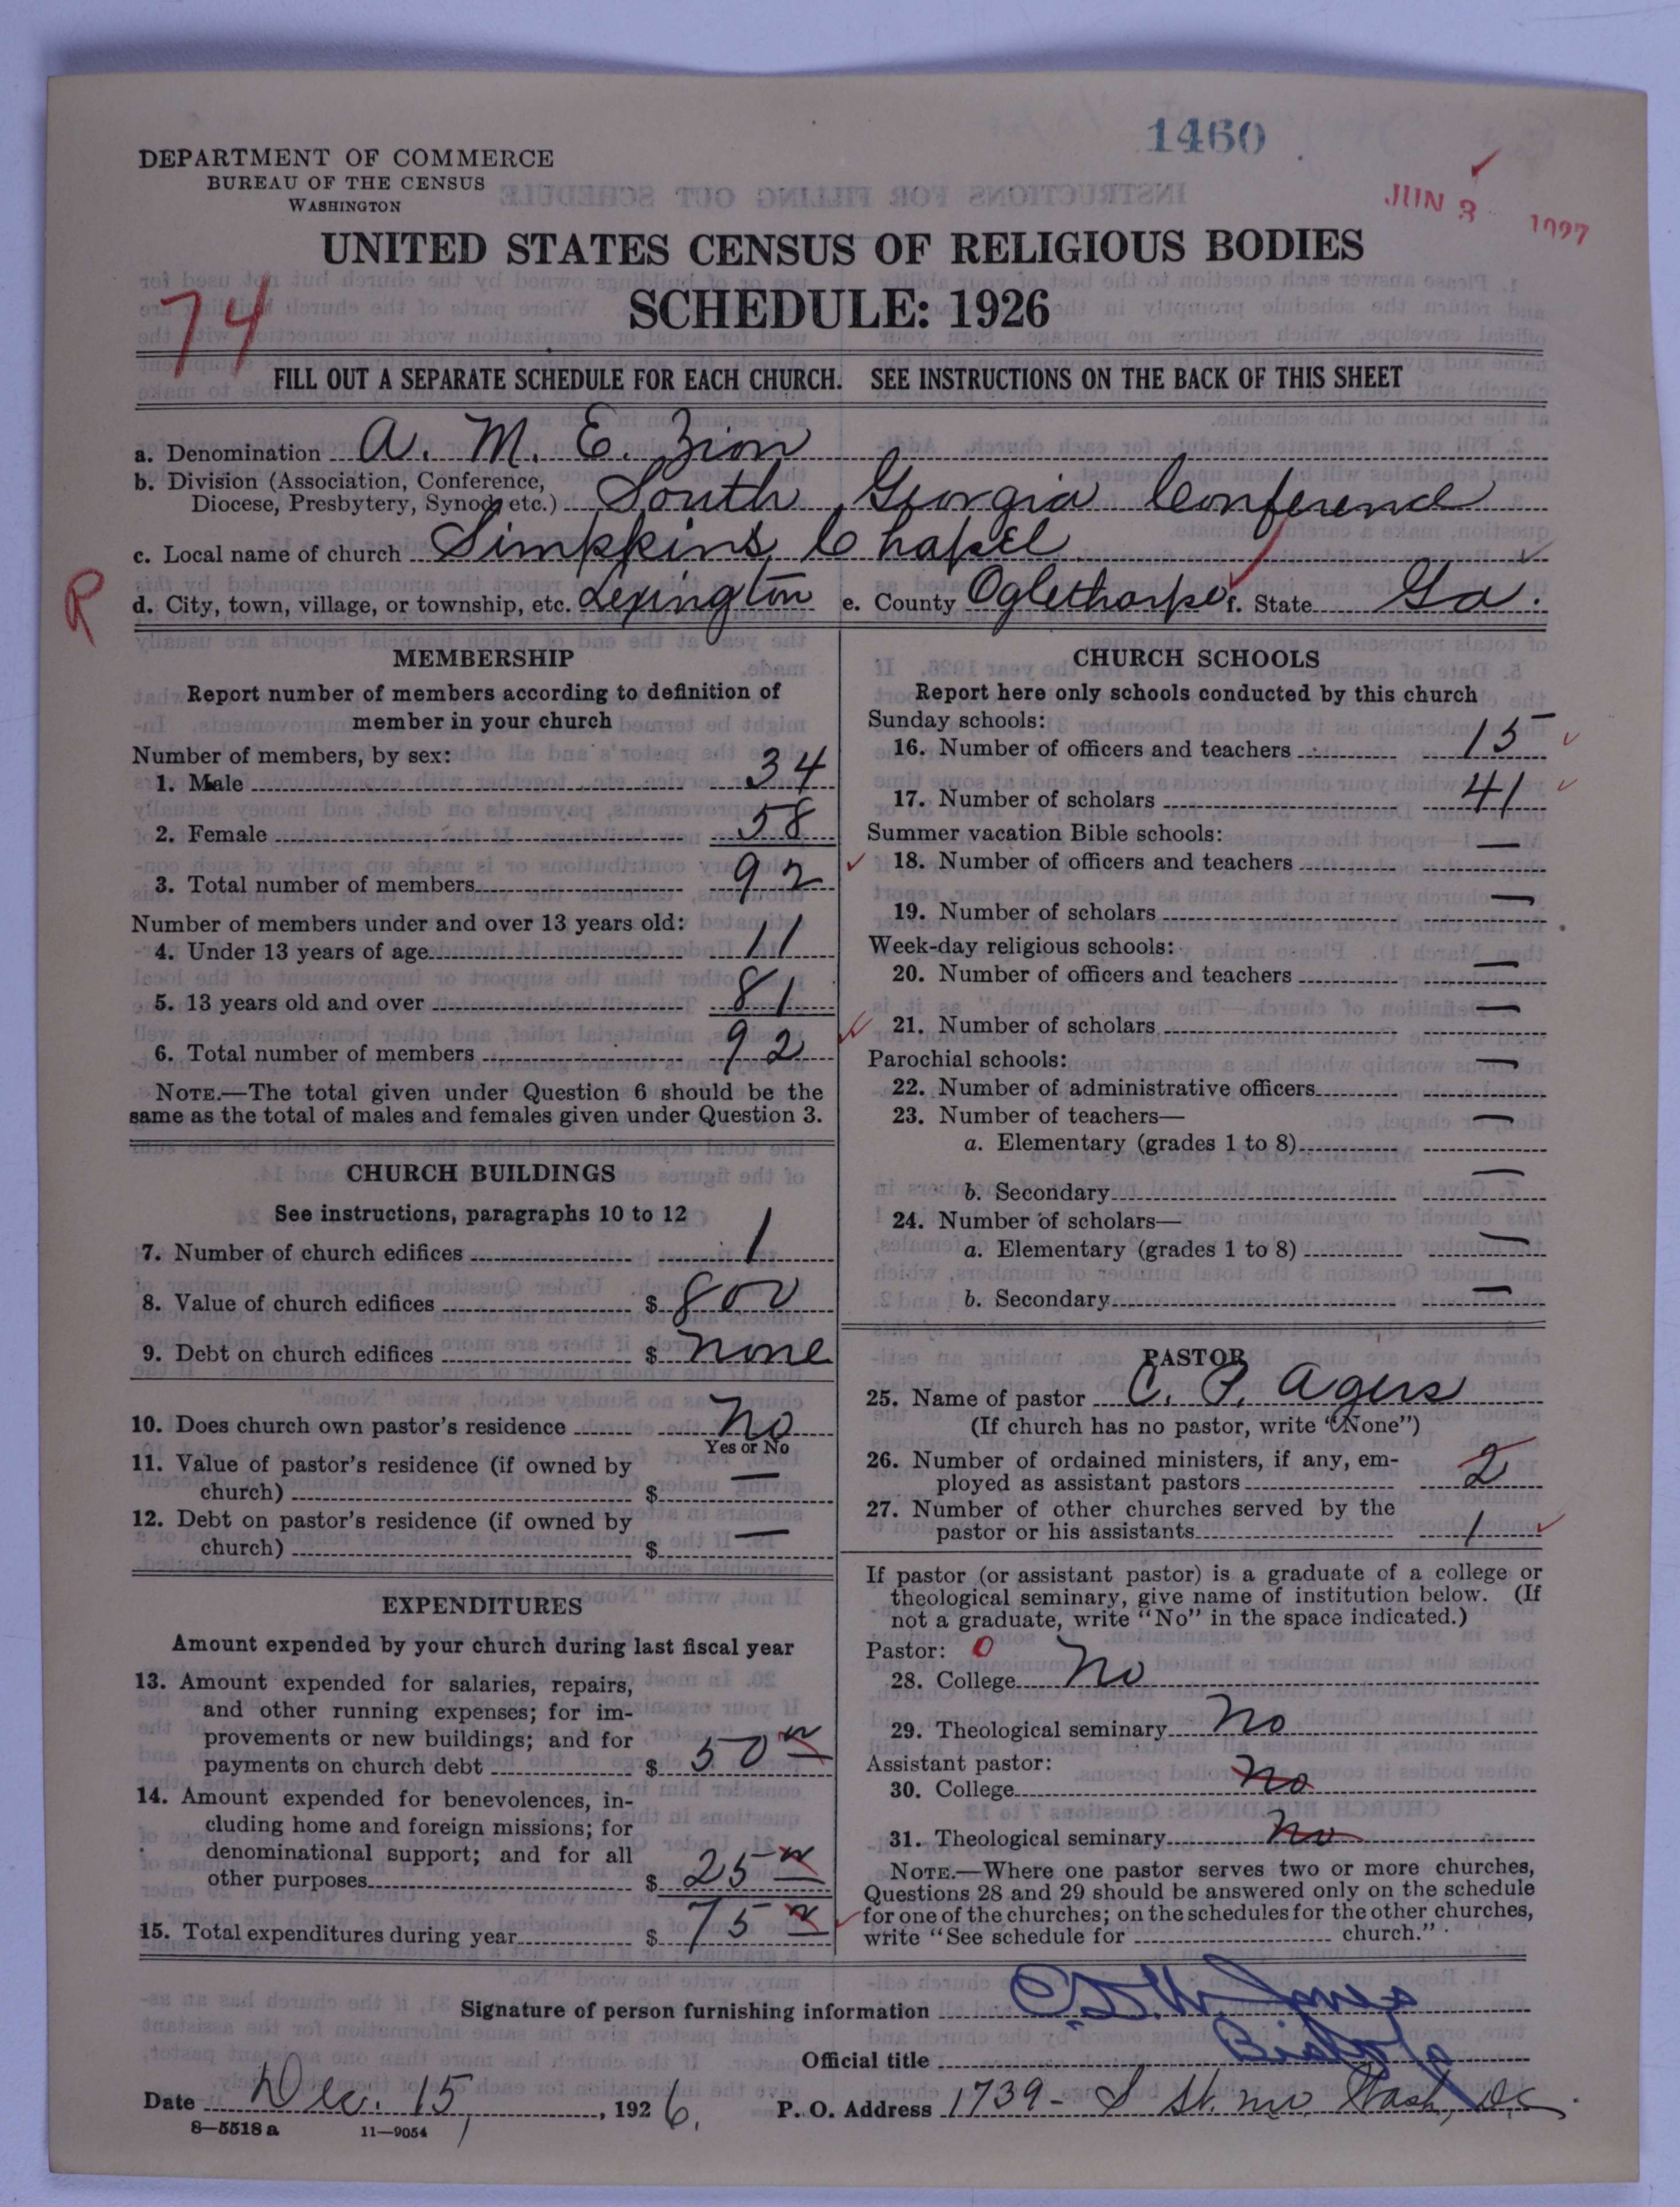 1460
DEPARTMENT OF COMMERCE
BUREAU OF THE CENSUS
WASHINGTON
JUN 3 1927
UNITED STATES CENSUS OF RELIGIOUS BODIES
SCHEDULE: 1926
74
FILL OUT A SEPARATE SCHEDULE FOR EACH CHURCH. SEE INSTRUCTIONS ON THE BACK OF THIS SHEET
a. Denomination A. M. E. Zion
b. Division (Association, Conference,
Diocese, Presbytery, Synod, etc.) South Georgia Conference
c. Local name of church Simpkins Chapel
R
d. City, town, village, or township, etc. Lexington e. County Oglethorpe f. State Ga.
MEMBERSHIP
Report number of members according to definition of
member in your church
Number of members, by sex:
1. Male 34
2. Female 58
3. Total number of members 92
Number of members under and over 13 years old:
4. Under 13 years of age 11
5. 13 years old and over 81
6. Total number of members 92
NOTE.—The total given under Question 6 should be the
same as the total of males and females given under Question 3.
CHURCH BUILDINGS
See instructions, paragraphs 10 to 12
7. Number of church edifices 1
8. Value of church edifices $ 800
9. Debt on church edifices $ None
10. Does church own pastor's residence No
Yes or No
11. Value of pastor's residence (if owned by
church) $ —
12. Debt on pastor's residence (if owned by
church) $ —
EXPENDITURES
Amount expended by your church during last fiscal year
13. Amount expended for salaries, repairs,
and other running expenses; for im-
provements or new buildings; and for
payments on church debt $ 50
14. Amount expended for benevolences, in-
cluding home and foreign missions; for
denominational support; and for all
other purposes $ 25
15. Total expenditures during year $ 75
CHURCH SCHOOLS
Report here only schools conducted by this church
Sunday schools:
16. Number of officers and teachers 15
17. Number of scholars 41
Summer vacation Bible schools:
18. Number of officers and teachers —
19. Number of scholars —
Week-day religious schools:
20. Number of officers and teachers —
21. Number of scholars —
Parochial schools:
22. Number of administrative officers —
23. Number of teachers—
a. Elementary (grades 1 to 8) —
b. Secondary —
24. Number of scholars—
a. Elementary (grades 1 to 8) —
b. Secondary —
PASTOR
25. Name of pastor C. P. Agers
(If church has no pastor, write "None")
26. Number of ordained ministers, if any, em-
ployed as assistant pastors 2
27. Number of other churches served by the
pastor or his assistants 1
If pastor (or assistant pastor) is a graduate of a college or
theological seminary, give name of institution below. (If
not a graduate, write "No" in the space indicated.)
Pastor: 0
28. College No
29. Theological seminary No
Assistant pastor:
30. College No
31. Theological seminary No
NOTE.—Where one pastor serves two or more churches,
Questions 28 and 29 should be answered only on the schedule
for one of the churches; on the schedules for the other churches,
write "See schedule for church."
Signature of person furnishing information Jones
Official title Bishop
Date Dec. 15, 1926. P. O. Address 1739 - S St. NW Wash, DC
8—5518 a 11—9054